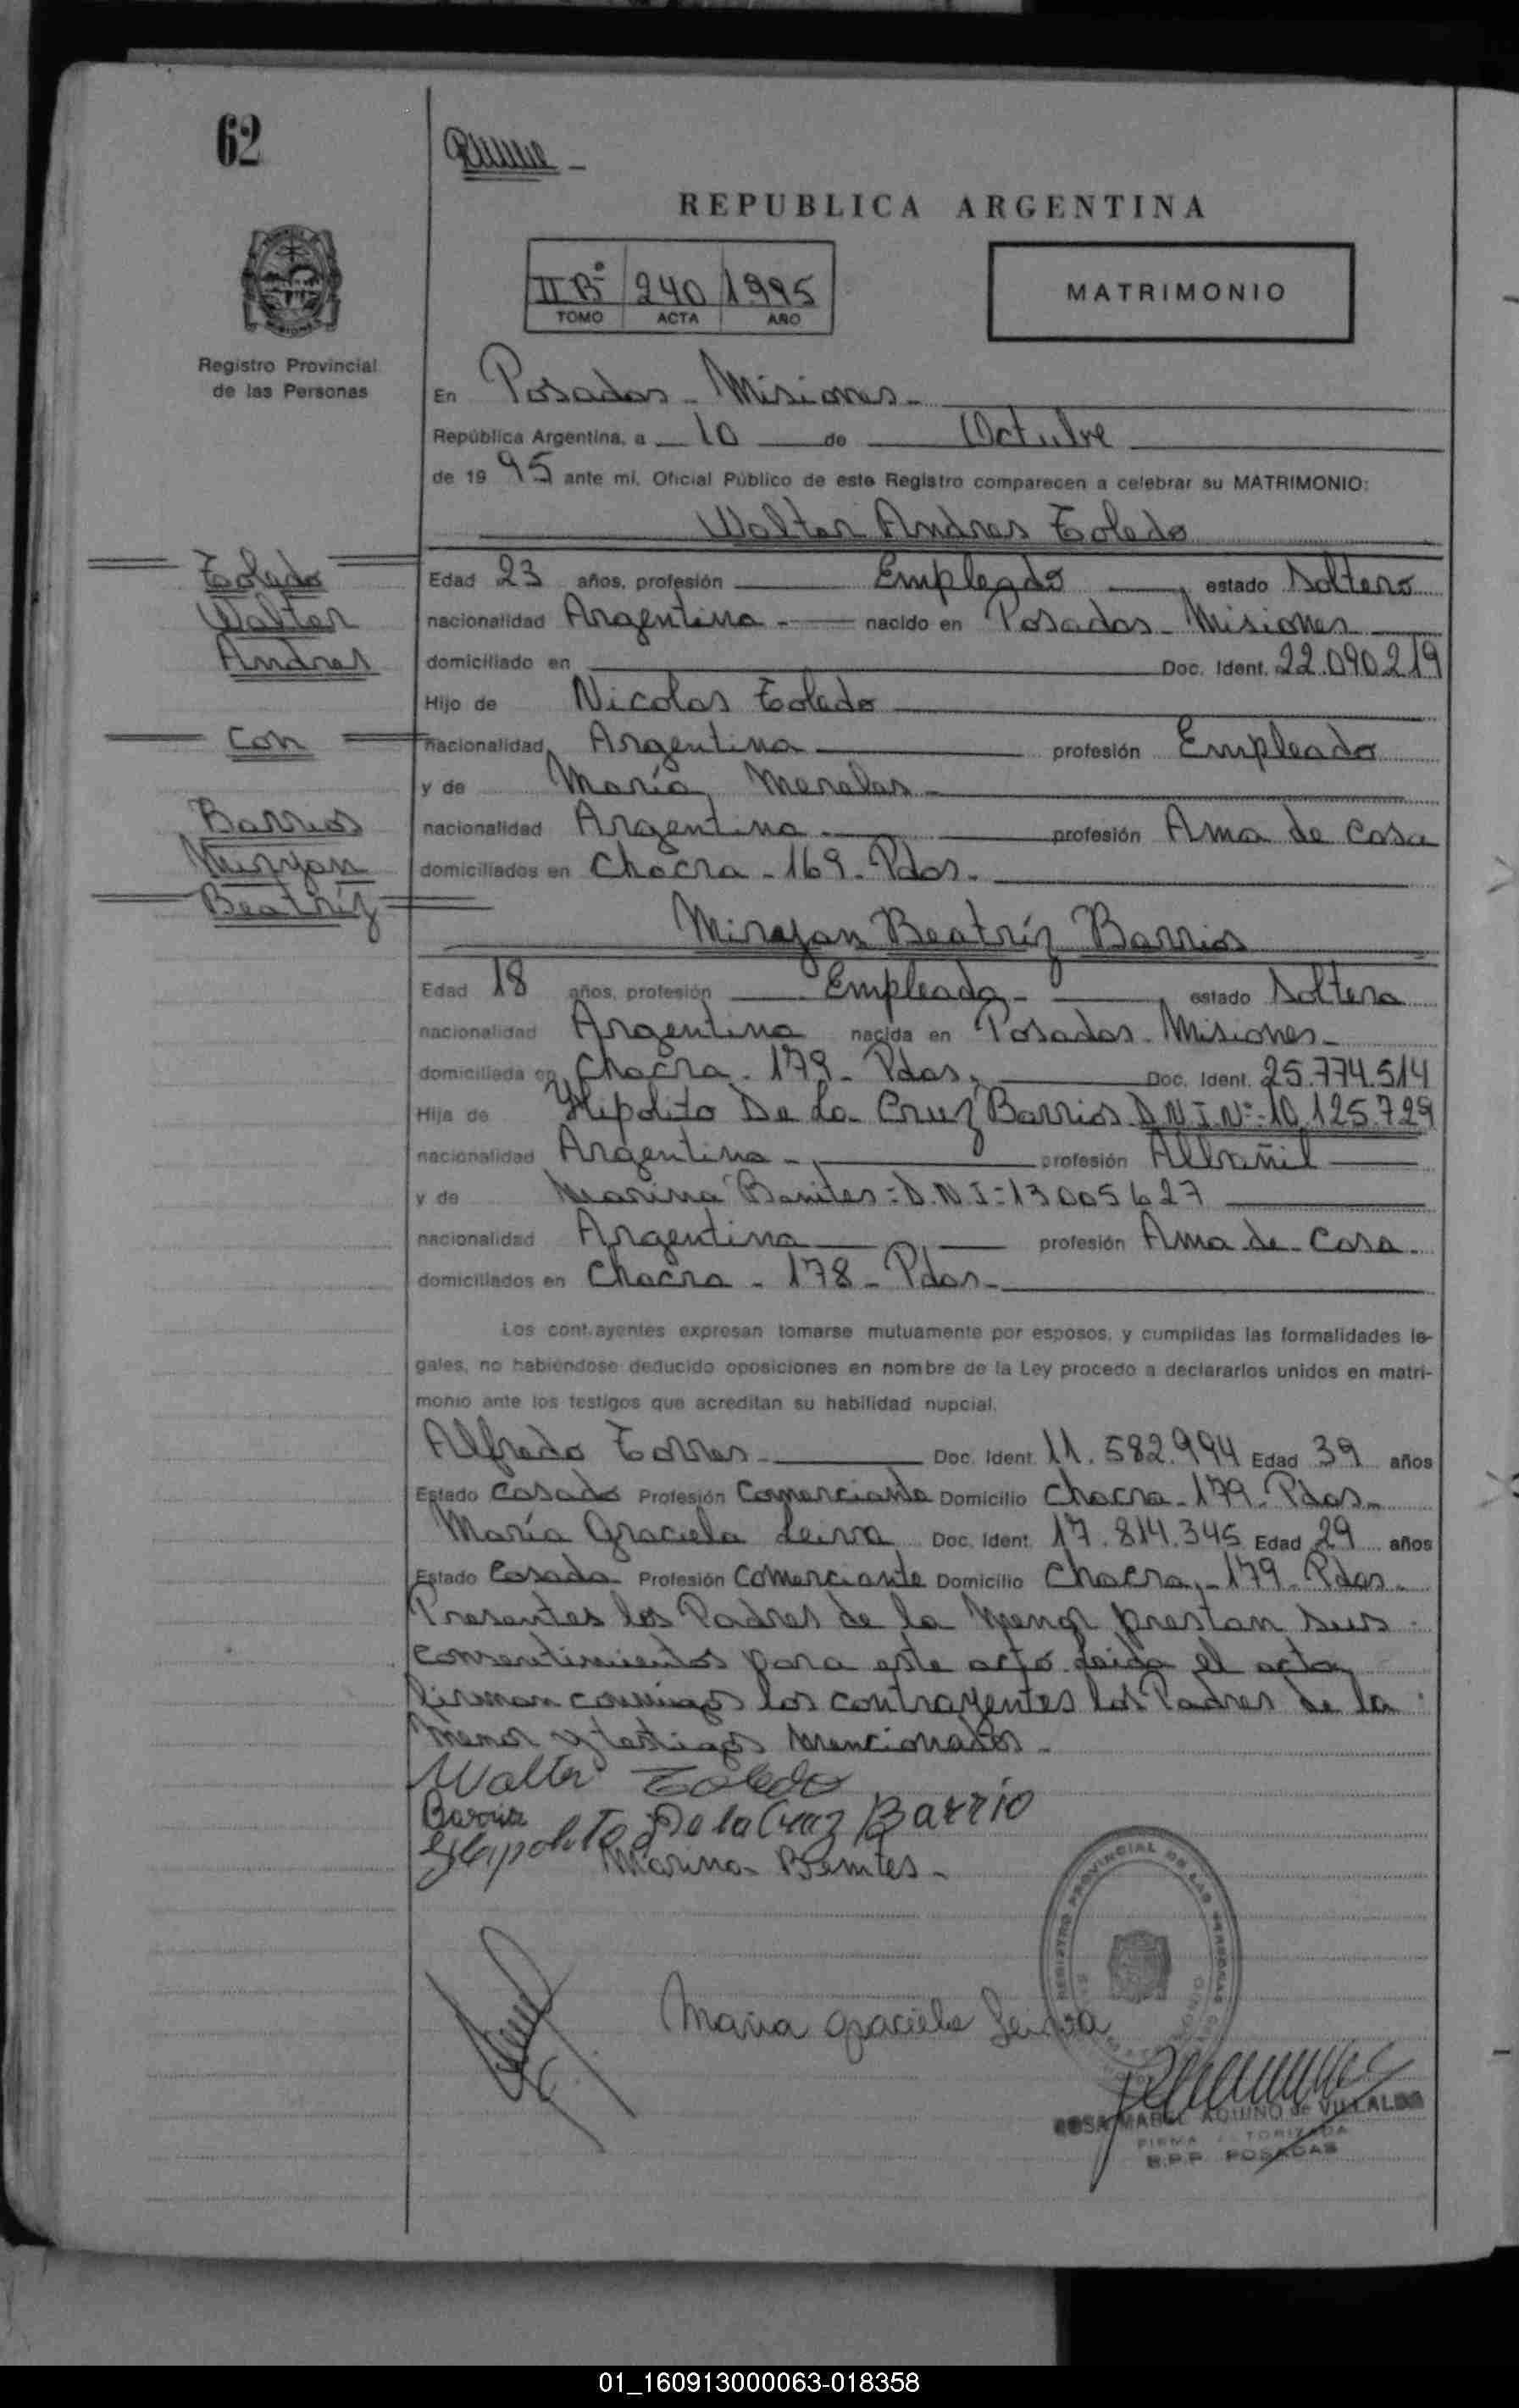 62
REPUBLICA ARGENTINA
II Bº 240 1995
TOMO ACTA AÑO
MATRIMONIO
Registro Provincial
de las Personas
En Posadas - Misiones -
República Argentina, a 10 de Octubre
de 1995 ante mi, Oficial Público de este Registro comparecen a celebrar su MATRIMONIO:
Walter Andres Toledo
Toledo
Walter
Andres
Con
Barrios
Miryan
Beatríz
Edad 23 años, profesión Empleado, estado Soltero
nacionalidad Argentina - nacido en Posadas - Misiones
domiciliado en Doc. Ident. 22.090.219
Hijo de Nicolas Toledo
nacionalidad Argentina profesión Empleado
y de María
nacionalidad Argentina - profesión Ama de casa
domiciliados en Chacra - 169 - Pdas.
Beatríz Barrios
Edad 18 años, profesión Empleada -, estado Soltera
nacionalidad Argentina nacida en Posadas - Misiones -
domiciliada en Chacra - 179 - Pdas, Doc. Ident. 25.774.514
Hija de Hipolito De La Cruz Barrios D.N.I.Nº-10.125.729
nacionalidad Argentina - profesión Albañil
y de Marina Benites = D.N.I = 13005627
nacionalidad Argentina profesión Ama de Casa.
domiciliados en Chacra - 178 - Pdas -
Los contrayentes expresan tomarse mutuamente por esposos, y cumplidas las formalidades le-
gales, no habiéndose deducido oposiciones en nombre de la Ley procedo a declararlos unidos en matri-
monio ante los testigos que acreditan su habilidad nupcial.
Alfredo Torres - Doc. Ident. 11.582.994 Edad 39 años
Estado Casado Profesión Comerciante Domicilio Chacra - 179 - Pdas -
María Graciela Leiva Doc. Ident. 17.814.345 Edad 29 años
Estado Casada Profesión Comerciante Domicilio Chacra - 179 - Pdas -
Presentes los Padres de la menor prestan sus
consentimientos para este acto. Leida el acta
firman conmigo los contrayentes los Padres de la
menor y testigos mencionados -
Walter Toledo
Barrios
Hipolito De la Cruz Barrio
Marina Benites -
Maria Graciela Leiva
REGISTRO PROVINCIAL DE LAS PERSONAS
ROSA MABEL AQUINO de VILLALBA
FIRMA AUTORIZADA
R.P.P. POSADAS
01_160913000063-018358